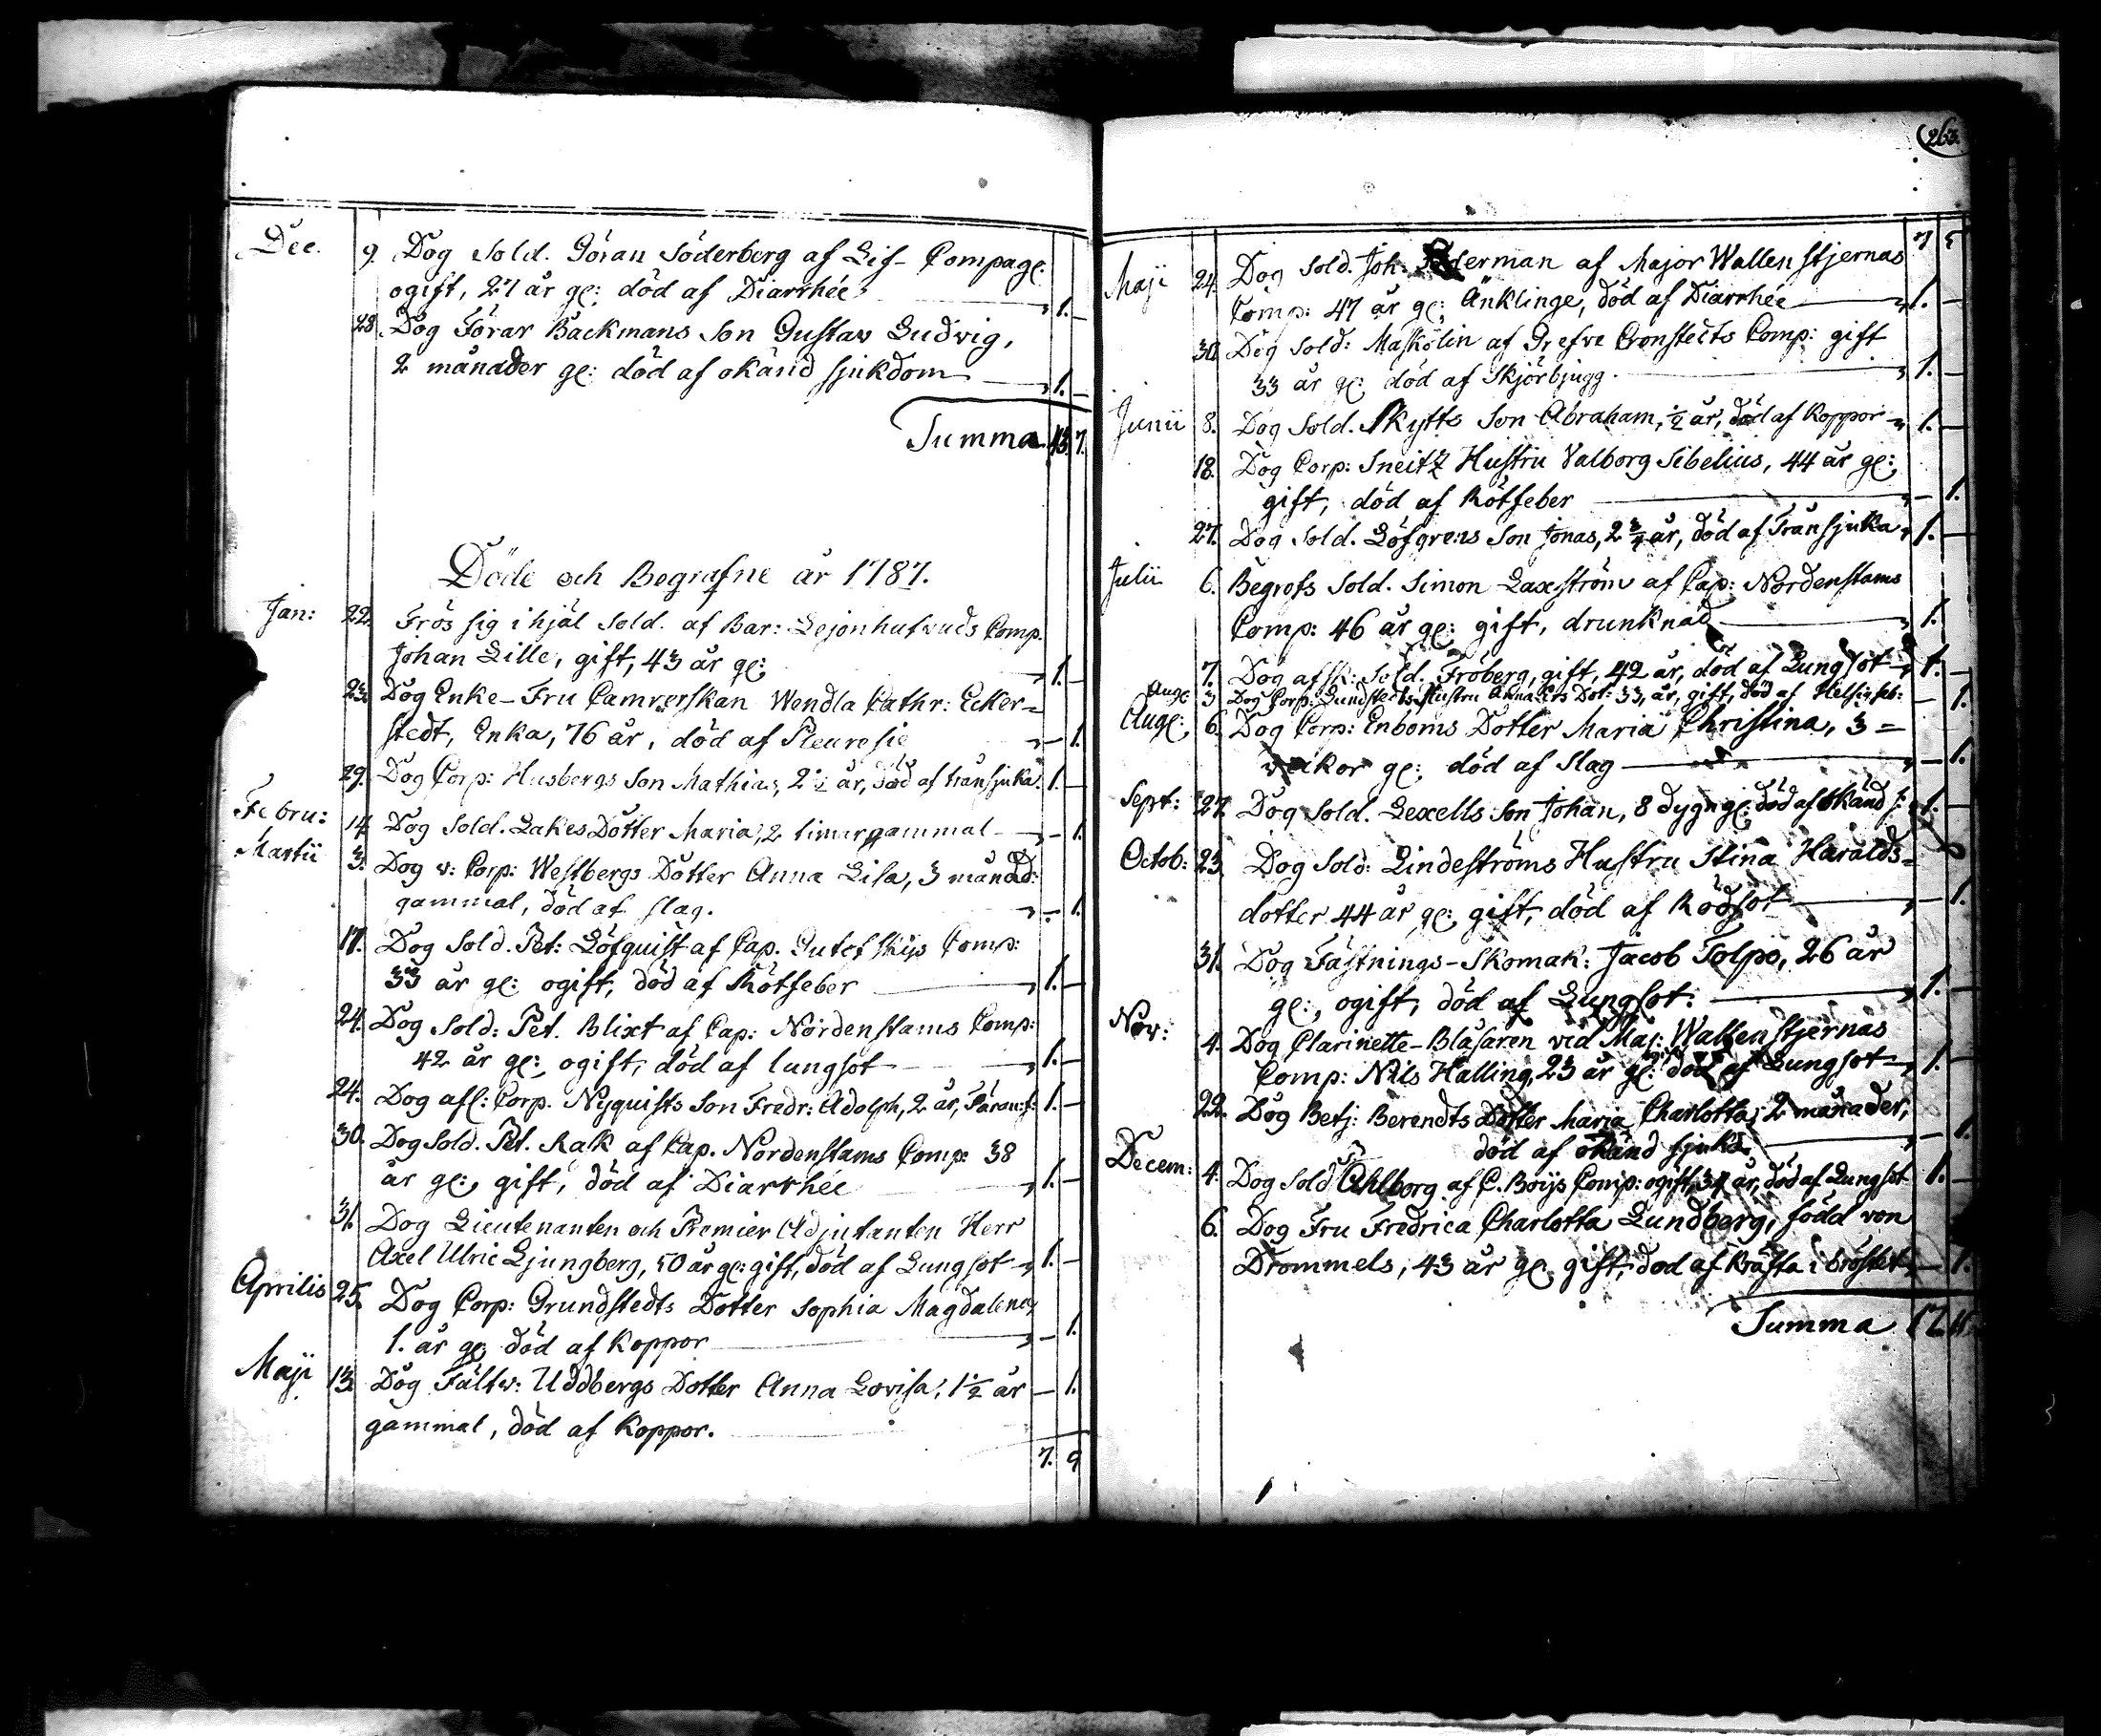 Dec. 9. Dog Sold. Göran Söderberg af Lif-Compagt:
ogift, 27 år gl: död af Diarrhée 1. —
28. Dog Förar Backmans Son Gustav Ludvig,
2 månader gl: död af okänd sjukdom 1. —
Summa 13. 7.
Döde och Begrafne år 1787.
Jan: 22. Frös sig ihjäl Sold. af Bar: Lejonhufvuds Comp.
Johan Lille, gift, 43 år gl: 1. —
23. Dog Enke-Fru Camrerskan Wendla Cathr: Ecker=
stedt, Enka, 76 år, död af Pleuresie — 1.
29. Dog Corp: Husbergs Son Mathias, 2 1/2 år, död af transjuka. 1. —
Febru: 14. Dog Sold. Lakes Dotter Maria, 2 timar gammal — 1.
Martii 3. Dog v: Corp: Westbergs Dotter Anna Lisa, 3 månad:
gammal, död af slag. — 1.
17. Dog Sold. Pet: Löfquist af Cap. Comp:
33 år gl: ogift, död af Rötfeber 1. —
24. Dog Sold: Pet. Blixt af Cap: Nordenstams Comp:
42 år gl: ogift, död af lungsot 1. —
24. Dog afs: Corp. Nyquists Son Fredr: Adolph, 2 år, 1. —
30. Dog Sold. Pet. Rak af Cap. Nordenstams Comp: 38
år gl: gift, död af Diarrhée 1. —
31. Dog Lieutenanten och Premier Adjutanten Herr
Axel Ulric Ljungberg, 50 år gl: gift, död af Lungsot 1. —
Aprilis 25. Dog Corp: Grundstedts Dotter Sophia Magdalena,
1. år gl: död af Koppor — 1.
Maji 13. Dog Fältw: Uddbergs Dotter Anna Lovisa, 1 1/2 år — 1.
gammal, död af Koppor.
7. 9
263.
7 5
Maji 24. Dog Sold. Joh. af Major Wallenstjernas
Comp: 47 år gl: Änklinge, död af Diarrhée 1. —
30. Dog Sold: Maskolin af Grefve Cronstedts Comp: gift
33 år gl: död af Skjörbjugg. 1. —
Junii 8. Dog Sold. Skytts Son Abraham, 1/2 år, död af Koppor 1. —
18. Dog Corp: Sneitz Hustru Valborg Sibelius, 44 år gl:
gift, död af Rötfeber — 1.
27. Dog Sold. Löfgrens Son Jonas, 2 3/4 år, död af Transjuka 1. —
Julii 6. Begrofs Sold. Simon Laxström af Cap: Nordenstams
Comp: 46 år gl: gift, drunknad 1.
7. Dog afsk: Sold. Fröberg, gift, 42 år, död af Lungsot 1. —
Aug: 3 Dog Corp: Lundstedts Hustru Anna Ers Dot: 33, år, gift, död af — 1.
Aug: 6. Dog Corp: Enboms Dotter Maria Christina, 3=
veikor gl: död af Slag — 1.
Sept: 27. Dog Sold. Lexells Son Johan, 8 dygn gl: död af okänd s: 1. —
Octob: 23. Dog Sold: Lindeströms Hustru Stina Haralds=
dotter 44 år gl: gift, död af Rödsot — 1.
31. Dog Fästnings-Skomak: Jacob Tolpo, 26 år
gl:, ogift, död af Lungsot: 1. —
Nov: 4. Dog Clarinette-Blåsaren vid Maj: Wallenstjernas
Comp: Nils Halling, 23 år gl: död af Lungsot 1. —
22. Dog Betj: Berendts Dotter Maria Charlotta, 2 månader,
död af okänd sjukd. — 1.
Decem: 4. Dog Sold Ahlborg af C. Boijs Comp: ogift, 34 år, död af Lungsot 1. —
6. Dog Fru Fredrica Charlotta Lundberg, född von
Drommels, 43 år gl: gift, död af Kräfta i bröstet — 1.
Summa 17.